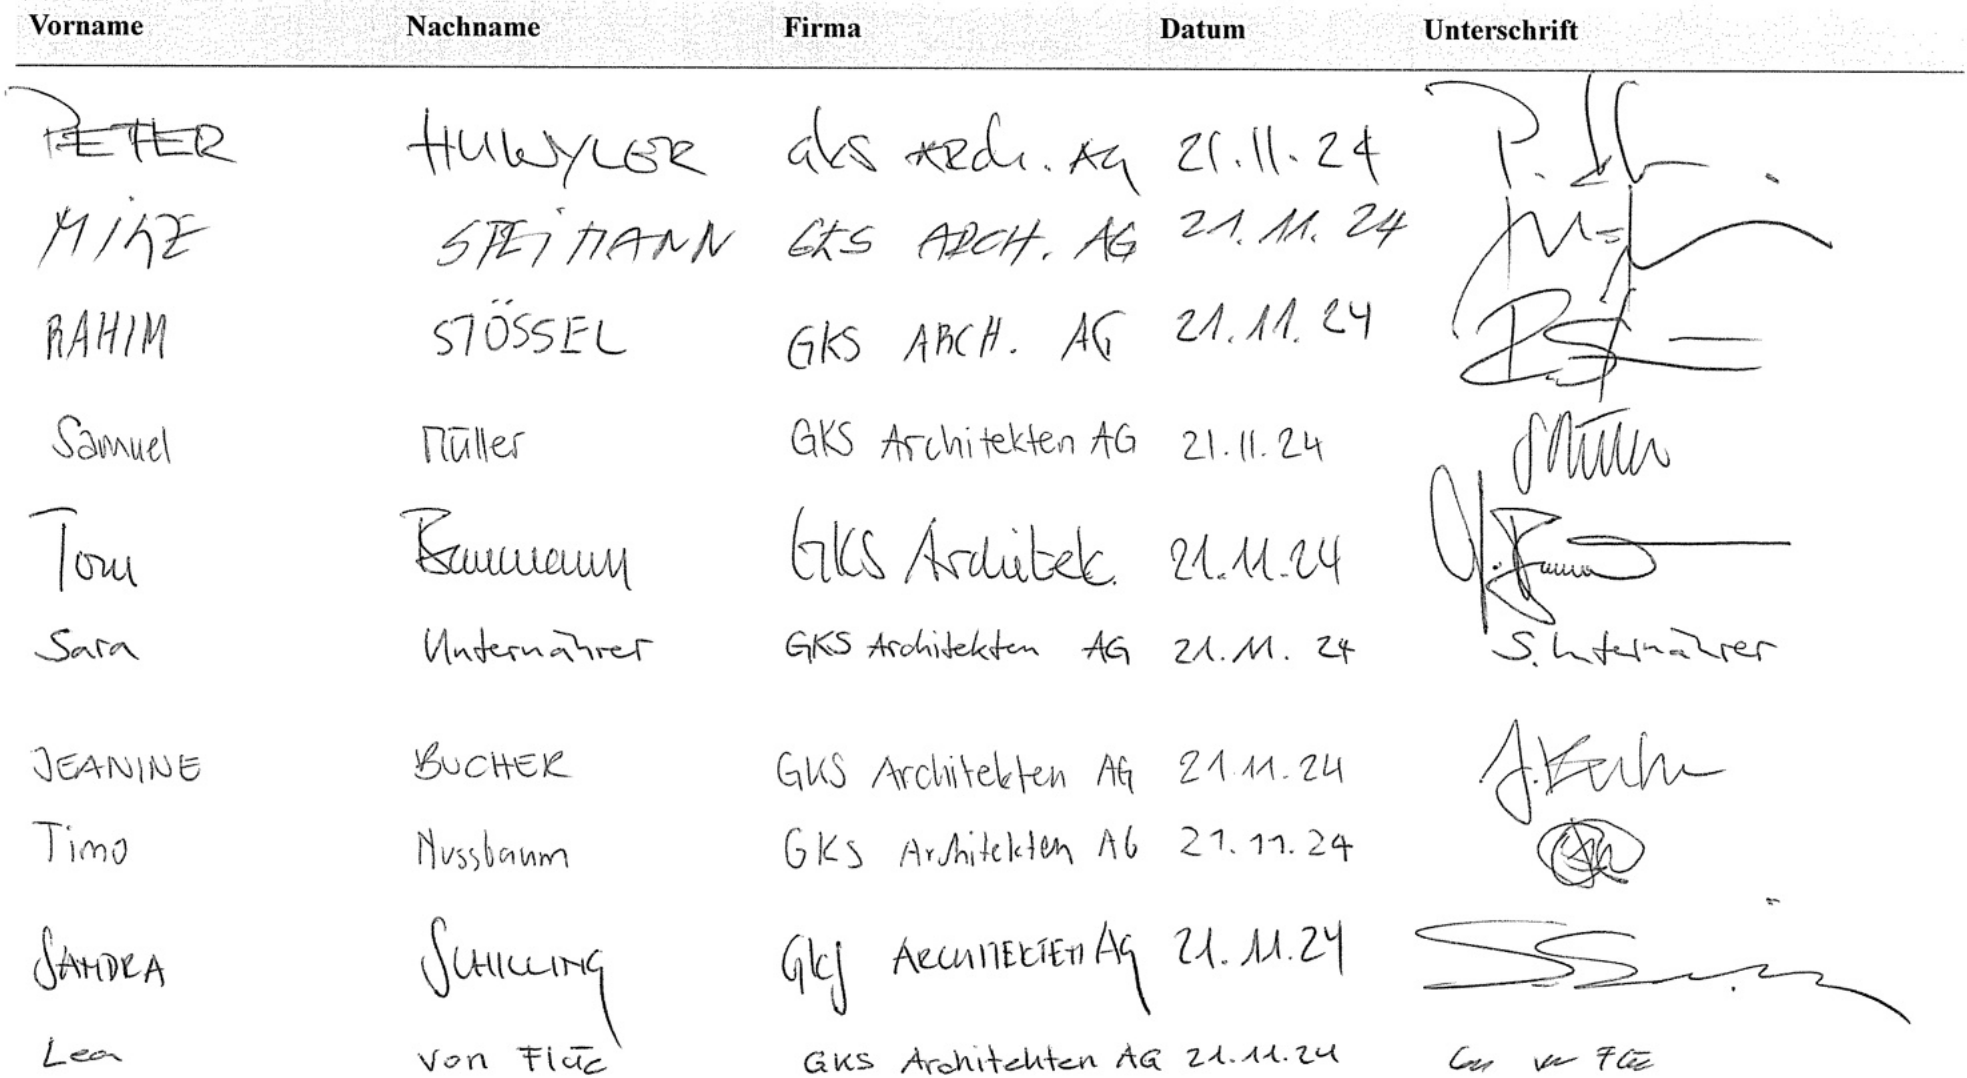 Vorname Nachname Firma Datum Unterschrift
PETER HUWYLER GKS ARCH. AG 21.11.24
MIKE STEIMANN GKS ARCH. AG 21.11.24
RAHIM STÖSSEL GKS ARCH. AG 21.11.24
Samuel Müller GKS Architekten AG 21.11.24 SMüller
Tom Baumann GKS Architek. 21.11.24
Sara Unternährer GKS Architekten AG 21.11.24 S. Unternährer
JEANINE BUCHER GKS Architekten AG 21.11.24
Timo Nussbaum GKS Architekten AG 21.11.24
SANDRA SCHILLING GKS ARCHITEKTEN AG 21.11.24
Lea von Flüe GKS Architekten AG 21.11.24 Lea von Flüe